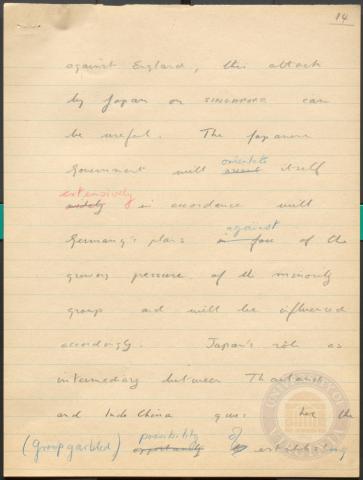 14
against England, this attack
by Japan on SINGAPORE can
be useful. The Japanese
orientate
Government will orient itself
extensively
widely in accordance with
against
Germany's plans in face of the
growing pressure of the minority
group and will be influenced
accordingly. Japan's rôle as
intermediary between Thailand
and Indo China gives her the
possibility of
(Group garbled) opportunity establishing